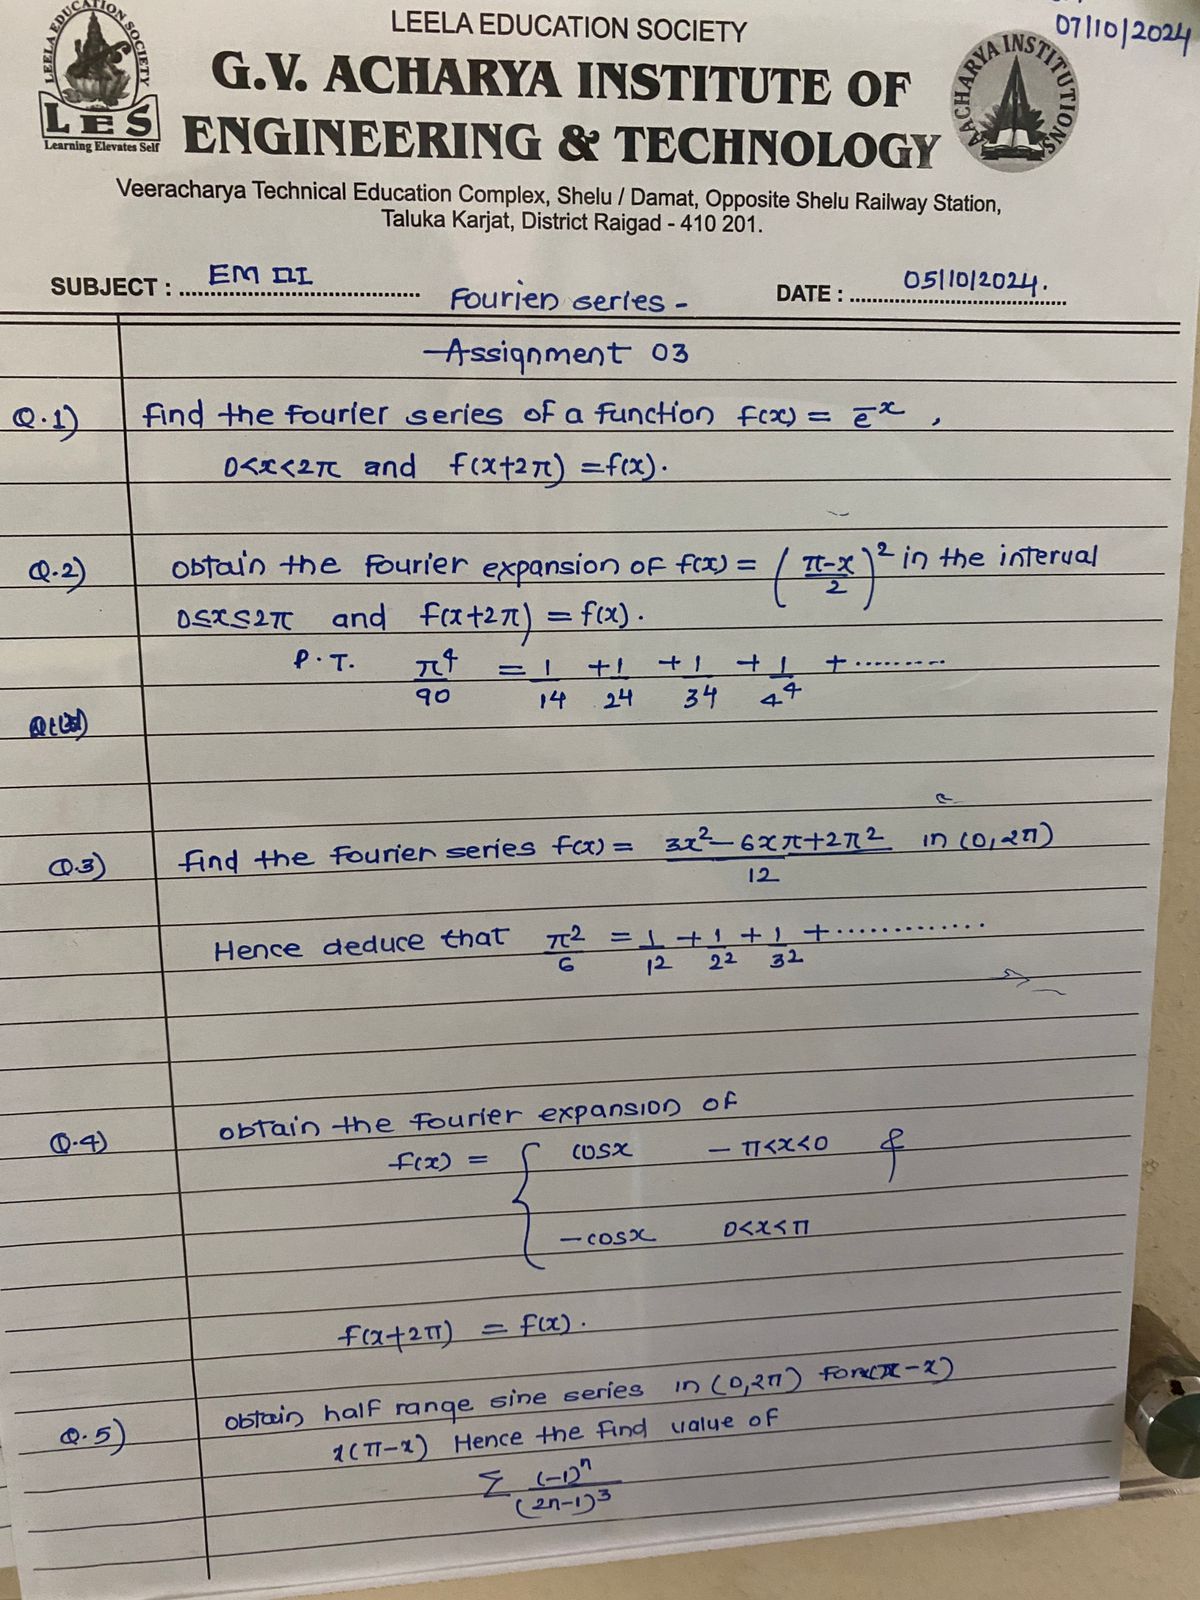 07/10/2024
LEELA EDUCATION SOCIETY
LES
Learning Elevates Self
LEELA EDUCATION SOCIETY
G.V. ACHARYA INSTITUTE OF
ENGINEERING & TECHNOLOGY
AACHARYA INSTITUTIONS
Veeracharya Technical Education Complex, Shelu / Damat, Opposite Shelu Railway Station,
Taluka Karjat, District Raigad - 410 201.
SUBJECT : EM III
DATE : 05/10/2024.
Fourier series -
Assignment 03
Q.1) find the fourier series of a function f(x) = e⁻ˣ ,
0<x<2π and f(x+2π) = f(x).
Q.2) obtain the Fourier expansion of f(x) = ( π-x / 2 )² in the interval
0≤x≤2π and f(x+2π) = f(x).
P.T. π⁴/90 = 1/14 + 1/24 + 1/34 + 1/4⁴ + .........
Q.3) find the fourier series f(x) = 3x² - 6xπ + 2π² / 12 in (0,2π)
Hence deduce that π²/6 = 1/12 + 1/2² + 1/3² + .............
Q.4) obtain the fourier expansion of
f(x) = { cosx - π<x<0 &
-cosx 0<x<π
f(x+2π) = f(x).
Q.5) obtain half range sine series in (0,2π) for x(π-x)
x(π-x) Hence the find value of
Σ (-1)ⁿ / (2n-1)³